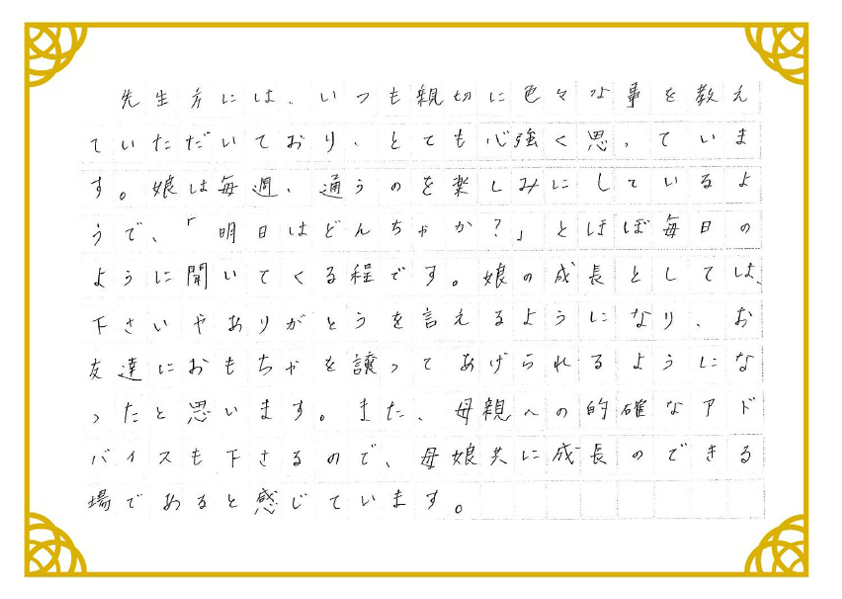 先生方には、いつも親切に色々な事を教え
ていただいており、とても心強く思っていま
す。娘は毎週、通うのを楽しみにしているよ
うで、「明日はどんちゃか？」とほぼ毎日の
ように聞いてくる程です。娘の成長としては、
下さいやありがとうを言えるようになり、お
友達におもちゃを譲ってあげられるようにな
ったと思います。また、母親への的確なアド
バイスも下さるので、母娘共に成長のできる
場であると感じています。